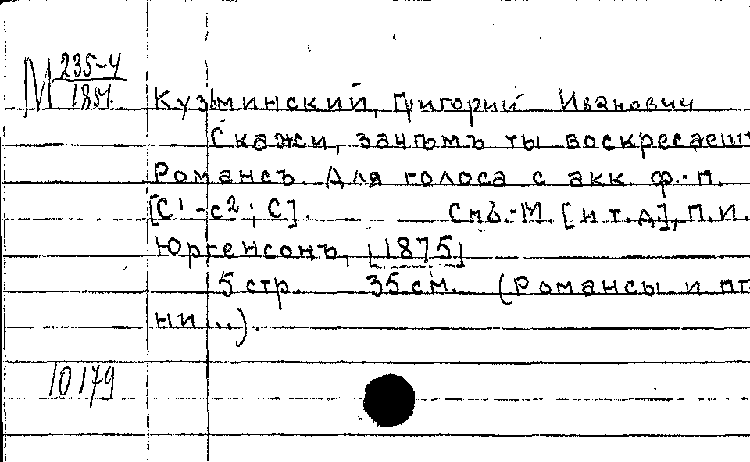 М 235-4
1851
Кузьминский, Григорий Иванович
Скажи, зачѣмъ ты воскресаешь
Романсъ. Для голоса с акк. ф.-п.
[С¹-с²; С]. Спб.-М. [и т.д], П.И.
Юргенсонъ, [1875]
5 стр. 35 см. (Романсы и пѣ
ни ..).
10179